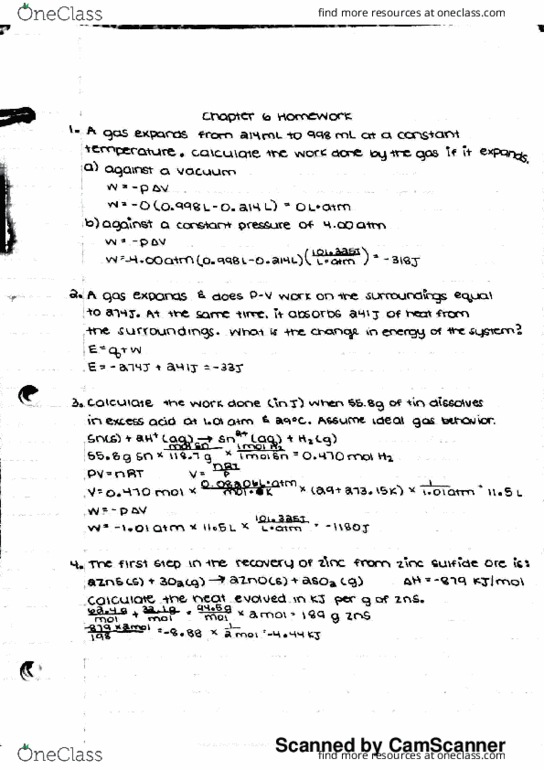 OneClass
find more resources at oneclass.com
Chapter 6 Homework
1. A gas expands from 214mL to 998 mL at a constant
temperature. Calculate the work done by the gas if it expands.
a) against a vacuum
W = -PΔV
W = -0 (0.998L-0.214L) = 0 L·atm
b) against a constant pressure of 4.00atm
W = -PΔV
W = -4.00atm (0.998L-0.214L) (101.325J / L·atm) = -318J
2. A gas expands & does P-V work on the surroundings equal
to 274J. At the same time, it absorbs 241J of heat from
the surroundings. What is the change in energy of the system?
E = q + W
E = -274J + 241J = -33J
3. Calculate the work done (in J) when 55.8g of tin dissolves
in excess acid at 1.01 atm & 29°C. Assume ideal gas behavior.
Sn(s) + 2H⁺(aq) → Sn²⁺(aq) + H₂(g)
55.8g Sn × mol Sn / 118.7g × 1mol H₂ / 1mol Sn = 0.470 mol H₂
PV = nRT V = nRT / P
V = 0.470 mol × 0.08206L·atm / mol·K × (29+273.15K) × 1 / 1.01atm = 11.5L
W = -PΔV
W = -1.01 atm × 11.5L × 101.325J / L·atm = -1180J
4. The first step in the recovery of zinc from zinc sulfide ore is:
2ZnS(s) + 3O₂(g) → 2ZnO(s) + 2SO₂(g) ΔH = -879 KJ/mol
Calculate the heat evolved in KJ per g of ZnS.
62.4g / mol + 32.1g / mol = 94.5g / mol × 2mol = 189 g ZnS
-879 × 2mol / 198 = -8.88 × 1 / 2mol = -4.44KJ
Scanned by CamScanner
OneClass
find more resources at oneclass.com